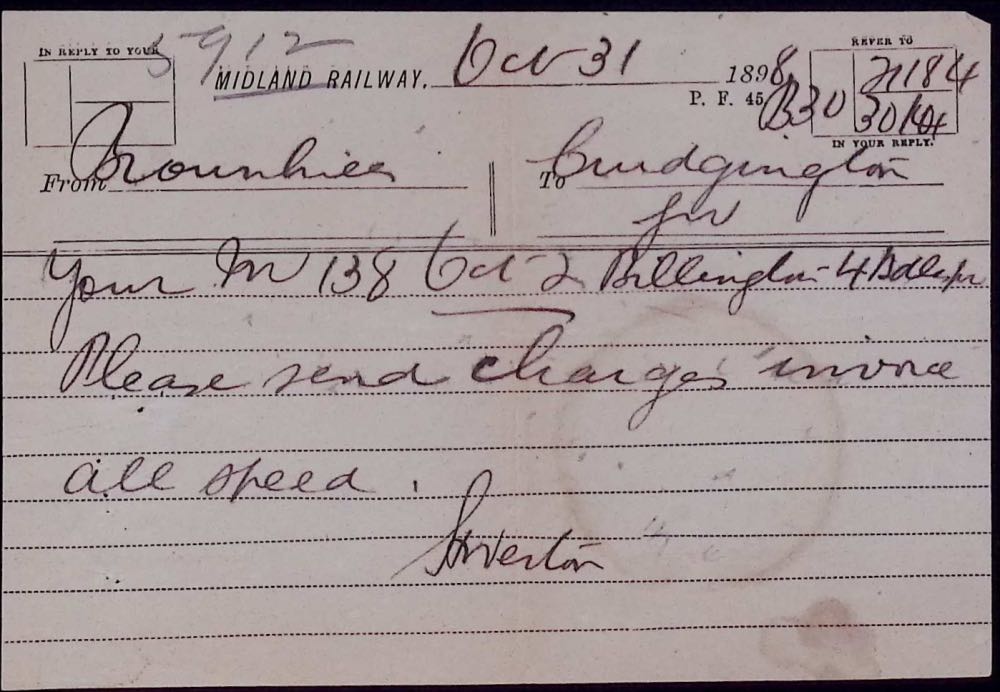 IN REPLY TO YOUR
5912
MIDLAND RAILWAY. Oct 31 1898
REFER TO
21184
P. F. 45 B30
30/10
IN YOUR REPLY.
From Brownhills To Crudgington
Your Inv 138 Oct 2 Billington 4 Bdls
Please send charges invoice
all speed.